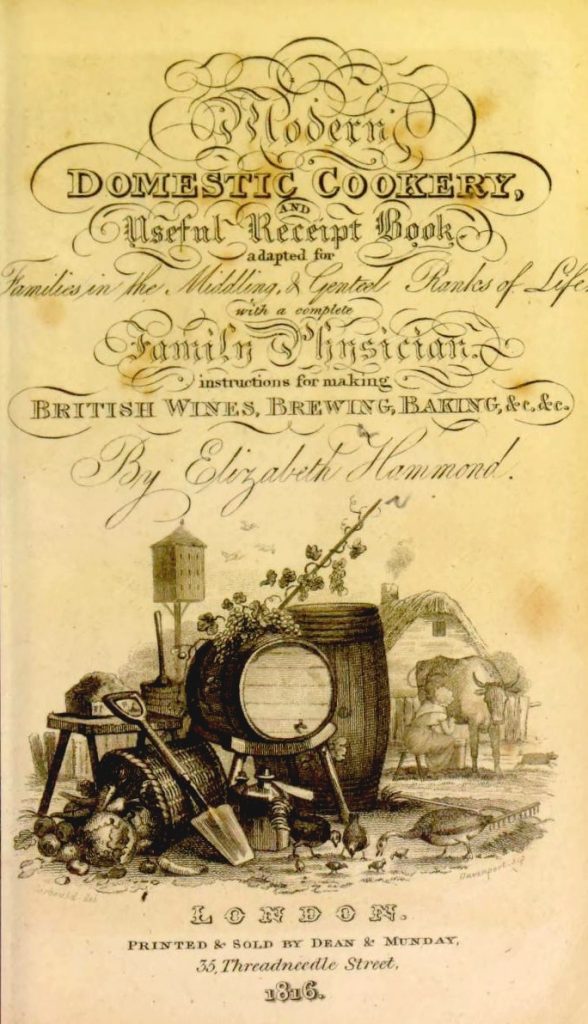 Modern
DOMESTIC COOKERY,
AND
Useful Receipt Book.
adapted for
Families in the Middling, & Genteel Ranks of Life:
with a complete
Family Physician.
instructions for making
BRITISH WINES, BREWING, BAKING, &c. &c.
By Elizabeth Hammond.
Davenport
LONDON.
PRINTED & SOLD BY DEAN & MUNDAY,
35, Threadneedle Street,
1816.